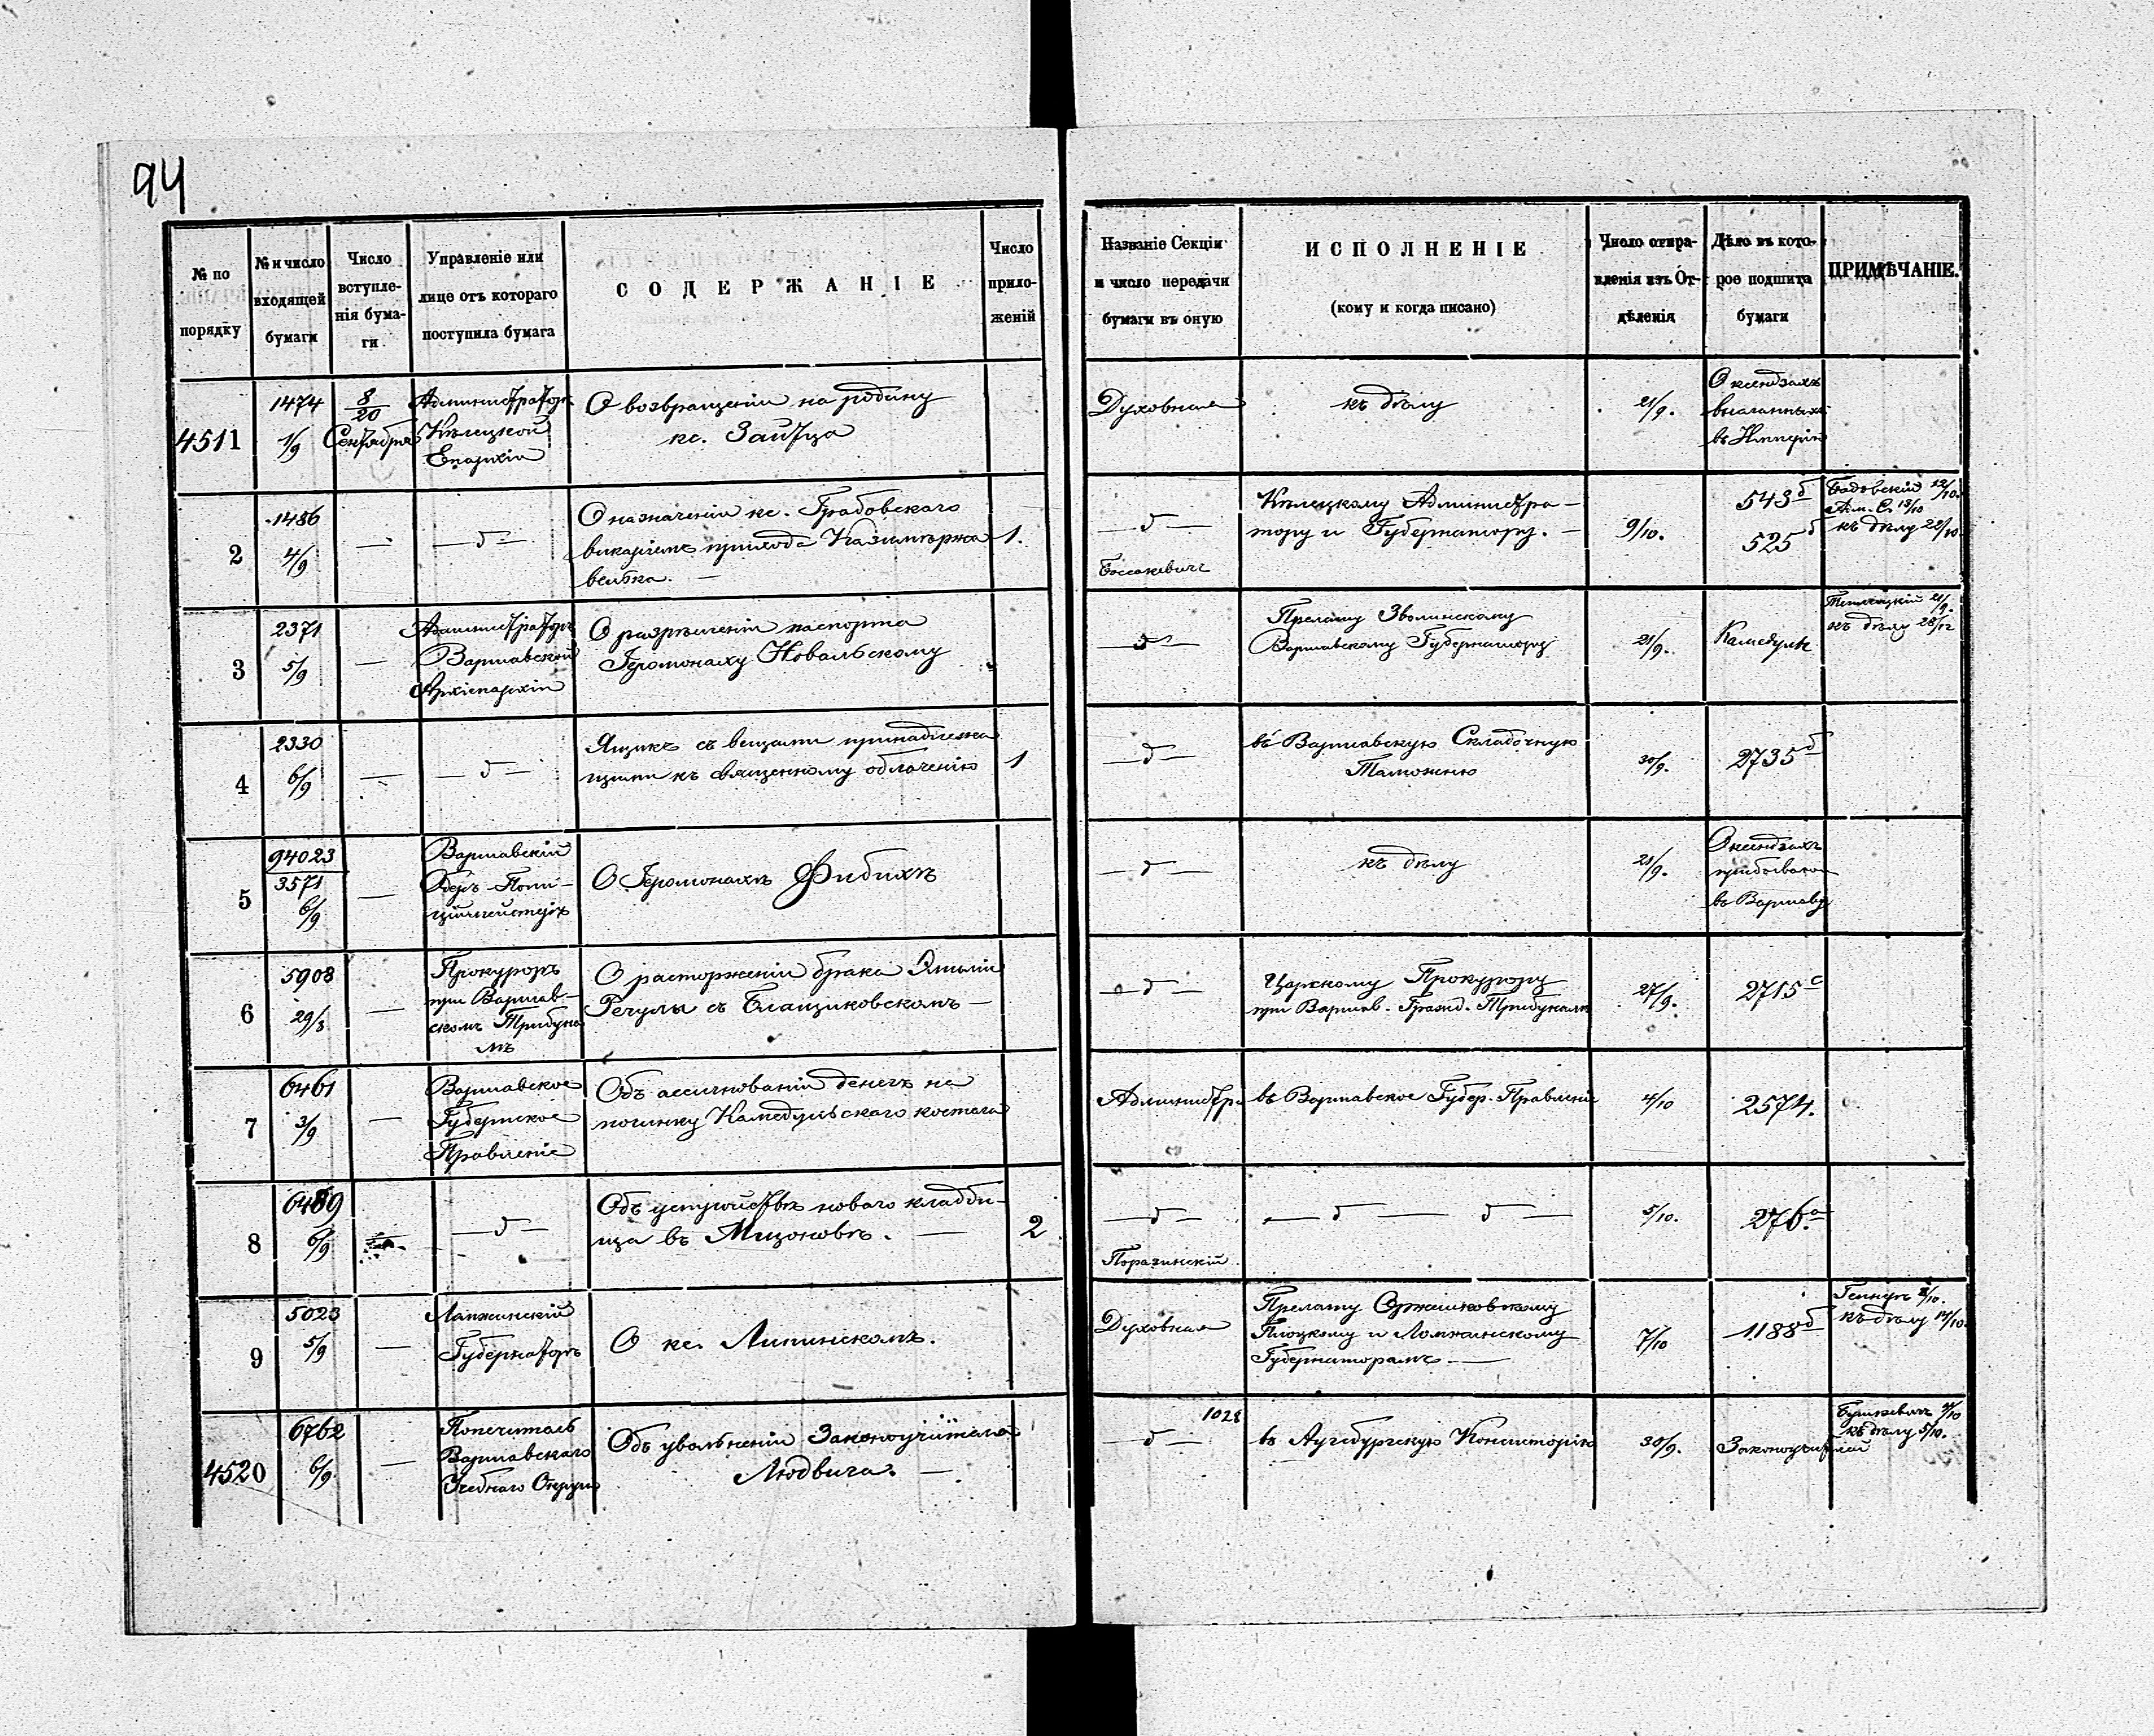 94
№ по
порядку
№ и число
входящей
бумаги
Число
вступле-
нія бума-
ги
Управленіе или
лице отъ котораго
поступила бумага
СОДЕРЖАНІЕ
Число
прило-
женій
Названіе Секціи
и число передачи
бумаги въ оную
ИСПОЛНЕНІЕ
(кому и когда писано)
Число отпра-
вленія изъ От-
дѣленія
Дѣло въ кото-
рое подшита
бумаги
ПРИМѢЧАНІЕ.
4511
1474
1/9
8/20
Сентября
Администраторъ
Кѣлецкой
Епархіи
О возвращеніи на родину
кс. Зайтца
Духовная
къ дѣлу
21/9.
О ксендзахъ
высланныхъ
въ Имперію
2
1486
4/9
—
— д —
О назначеніи кс. Грабовскаго
викаріемъ прихода Казимѣржа
велька. —
1.
— д —
Кѣлецкому Администра-
тору и Губернатору. —
9/10.
543 б
525 б
12/10.
18/10
къ дѣлу 22/10
3
2371
5/9
—
Администраторъ
Варшавской
Архіепархіи
О разрѣшеніи паспорта
Іеромонаху Новальскому
— д —
Прелату Зволинскому
Варшавскому Губернатору
21/9.
Камедулы
21/9.
къ дѣлу 28/12
4
2330
6/9
—
— д —
Ящикъ съ вещами принадлежа
щими къ священному облаченію
1
— д —
въ Варшавскую Складочную
Таможню
30/9.
2735 б
5
94023
3571
6/9
—
Варшавскій
Оберъ-Поли-
ційместеръ
О Іеромонахѣ Фибихѣ
— д —
къ дѣлу
21/9.
О ксендзахъ
прибывающ
въ Варшаву
6
5908
29/8
—
Прокуроръ
при Варшав-
скомъ Трибуна
лѣ
О расторженіи брака Эмиліи
Речулы съ Блащиковскомъ —
— д —
Царскому Прокурору
при Варшав. Гражд. Трибуналѣ
27/9.
2715 с
7
6461
3/9
—
Варшавское
Губернское
Правленіе
Объ ассигнованіи денегъ на
починку Камедульскаго костела
Администра
въ Варшавское Губер. Правленіе
4/10
2574.
8
6489
6/9
— д —
Объ устройствѣ новаго кладби-
ща въ Мщоновѣ. —
2
— д —
Порачинскій
— д — д —
5/10.
276 а
9
5023
5/9
—
Ломжинскій
Губернаторъ
О кс. Липинскомъ.
Духовная
Прелату Оржешковскому
Плоцкому и Ломжинскому
Губернаторамъ. —
7/10
1188 б
къ дѣлу 14/10
4520
6762
6/9
—
Попечитель
Варшавскаго
Учебнаго Округа
Объ увольненіи Законоучителя
Людвига. —
1028
— д —
въ Аугсбургскую Консисторію
30/9.
Законоучителей
4/10
къ дѣлу 5/10.